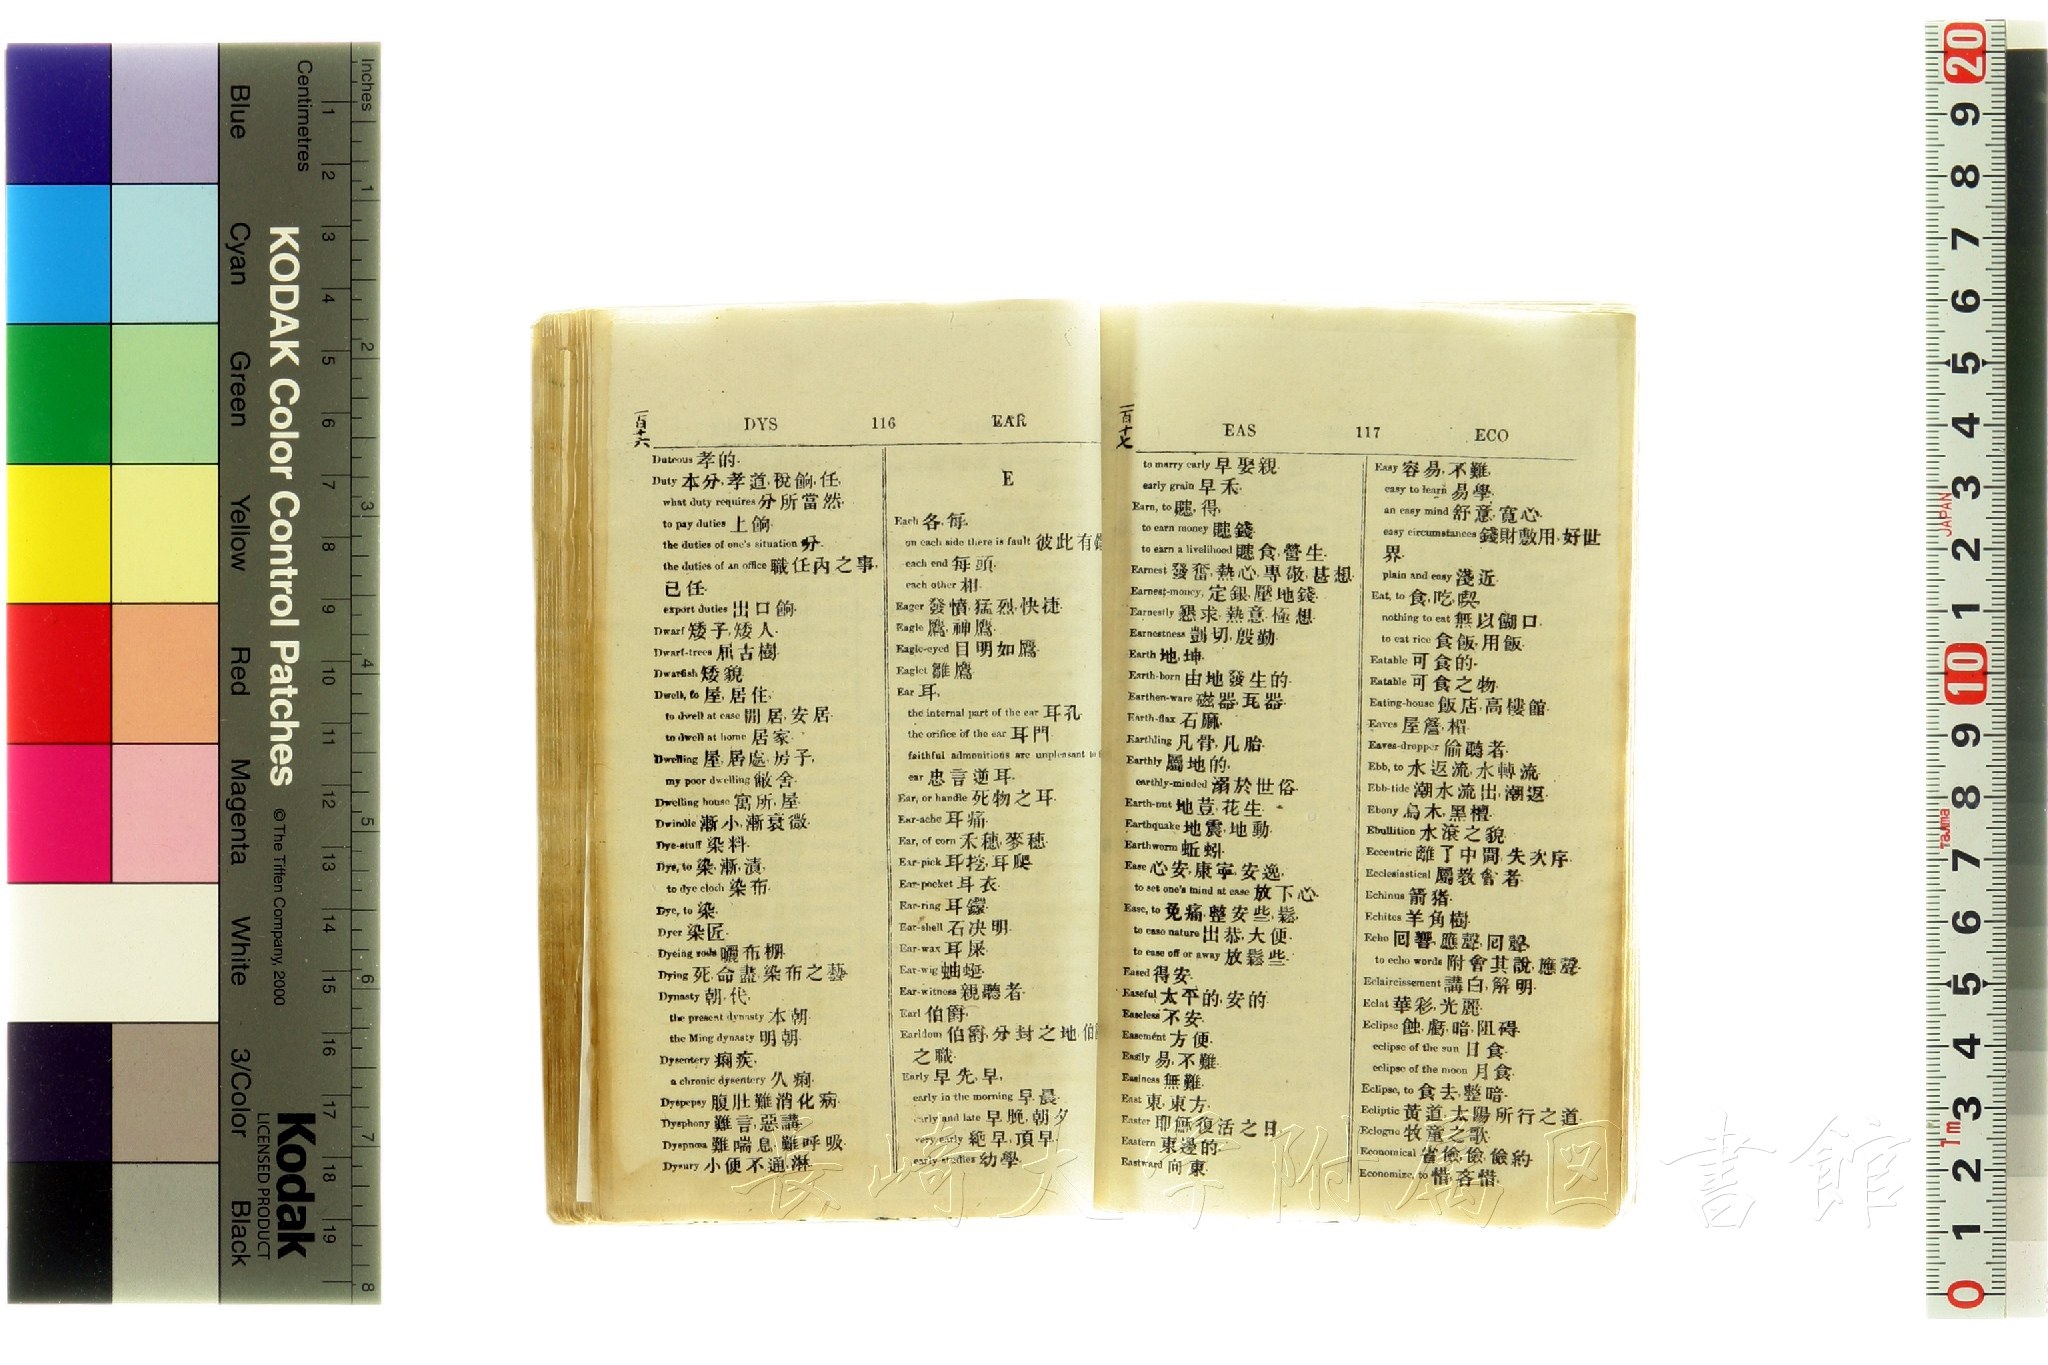 Inches
Centimetres
1 2 3 4 5 6 7 8 9 10 11 12 13 14 15 16 17 18 19
1 2 3 4 5 6 7 8
Blue
Cyan
Green
Yellow
Red
Magenta
White
3/Color
Black
KODAK Color Control Patches
© The Tiffen Company, 2000
Kodak
LICENSED PRODUCT
一百十六
DYS 116 EAR
Duteous 孝的.
Duty 本分,孝道,稅餉,任,
what duty requires 分所當然.
to pay duties 上餉.
the duties of one's situation 分.
the duties of an office 職任內之事,
己任.
export duties 出口餉.
Dwarf 矮子,矮人.
Dwarf-trees 屈古樹.
Dwarfish 矮貌.
Dwell, to 屋,居住,
to dwell at ease 閒居,安居.
to dwell at home 居家.
Dwelling 屋,居處,房子,
my poor dwelling 敝舍.
Dwelling house 寓所,屋.
Dwindle 漸小,漸衰微.
Dye-stuff 染料.
Dye, to 染,漸,漬,
to dye cloth 染布.
Dye, to 染.
Dyer 染匠.
Dyeing rods 曬布棚.
Dying 死,命盡,染布之藝.
Dynasty 朝,代,
the present dynasty 本朝.
the Ming dynasty 明朝.
Dysentery 痢疾,
a chronic dysentery 久痢.
Dyspepsy 腹肚難消化病.
Dysphony 難言,惡講.
Dyspnœa 難喘息,難呼吸.
Dysury 小便不通,淋.
E
Each 各,每.
on each side there is fault 彼此有
each end 每頭.
each other 相.
Eager 發憤,猛烈,快捷.
Eagle 鷹,神鷹.
Eagle-eyed 目明如鷹.
Eaglet 雛鷹.
Ear 耳,
the internal part of the ear 耳孔.
the orifice of the ear 耳門.
faithful admonitions are unpleasant to
ear 忠言逆耳.
Ear, or handle 死物之耳.
Ear-ache 耳痛.
Ear, of corn 禾穗,麥穗.
Ear-pick 耳挖,耳爬.
Ear-pocket 耳衣.
Ear-ring 耳鐶.
Ear-shell 石決明.
Ear-wax 耳屎.
Ear-wig 蚰蜒.
Ear-witness 親聽者.
Earl 伯爵,
Earldom 伯爵,分封之地,伯
之職.
Early 早,先,早,
early in the morning 早晨.
early and late 早晚,朝夕.
very early 絕早,頂早.
early studies 幼學.
一百十七
EAS 117 ECO
to marry early 早娶親.
early grain 早禾.
Earn, to 賺,得,
to earn money 賺錢.
to earn a livelihood 賺食,營生.
Earnest 發奮,熱心,專敬,甚想.
Earnest-money, 定銀,壓地錢.
Earnestly 懇求,熱意,極想.
Earnestness 剴切,殷勤.
Earth 地,坤.
Earth-born 由地發生的.
Earthen-ware 磁器,瓦器.
Earth-flax 石麻.
Earthling 凡骨,凡胎.
Earthly 屬地的,
earthly-minded 溺於世俗.
Earth-nut 地荳,花生.
Earthquake 地震,地動.
Earthworm 蚯蚓.
Ease 心安,康寧,安逸,
to set one's mind at ease 放下心.
Ease, to 免痛,整安些,鬆,
to ease nature 出恭,大便.
to ease off or away 放鬆些.
Eased 得安.
Easeful 太平的,安的.
Easeless 不安.
Easement 方便.
Easily 易,不難.
Easiness 無難.
East 東,東方.
Easter 耶穌復活之日.
Eastern 東邊的.
Eastward 向東.
Easy 容易,不難,
easy to learn 易學.
an easy mind 舒意,寬心.
easy circumstances 錢財敷用,好世
界.
plain and easy 淺近.
Eat, to 食,吃,喫,
nothing to eat 無以餬口.
to eat rice 食飯,用飯.
Eatable 可食的.
Eatable 可食之物.
Eating-house 飯店,高樓館.
Eaves 屋簷,楣.
Eaves-dropper 偷聽者.
Ebb, to 水返流,水轉流.
Ebb-tide 潮水流出,潮返.
Ebony 烏木,黑檀.
Ebullition 水滾之貌.
Eccentric 離了中間,失次序.
Ecclesiastical 屬教會者.
Echinus 箭猪.
Echites 羊角樹.
Echo 囘響,應聲,囘聲,
to echo words 附會其說,應聲.
Eclaircissement 講白,解明.
Eclat 華彩,光麗.
Eclipse 蝕,虧,暗,阻碍,
eclipse of the sun 日食.
eclipse of the moon 月食.
Eclipse, to 食去,整暗.
Ecliptic 黃道,太陽所行之道.
Eclogue 牧童之歌.
Economical 省儉,儉,儉約.
Economize, to 惜,吝惜.
長崎大学附属図書館
20 9 8 7 6 5 4 3 2 1 10 9 8 7 6 5 4 3 2 1 0
JAPAN
Tajima
1m